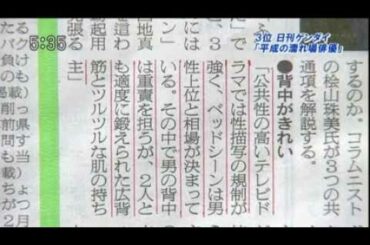 5:35
3位 日刊ゲンダイ
「平成の濡れ場俳優」
するのか。コラムニスト
の桧山珠美氏が3つの共
通項を解説する。
●背中がきれい
「公共性の高いテレビド
ラマでは性描写の規制が
強く、ベッドシーンは男
性上位と相場が決まって
いる。その中で男の背中
は重責を担うが、2人と
も適度に鍛えられた広背
筋とツルツルな肌の持ち
主」